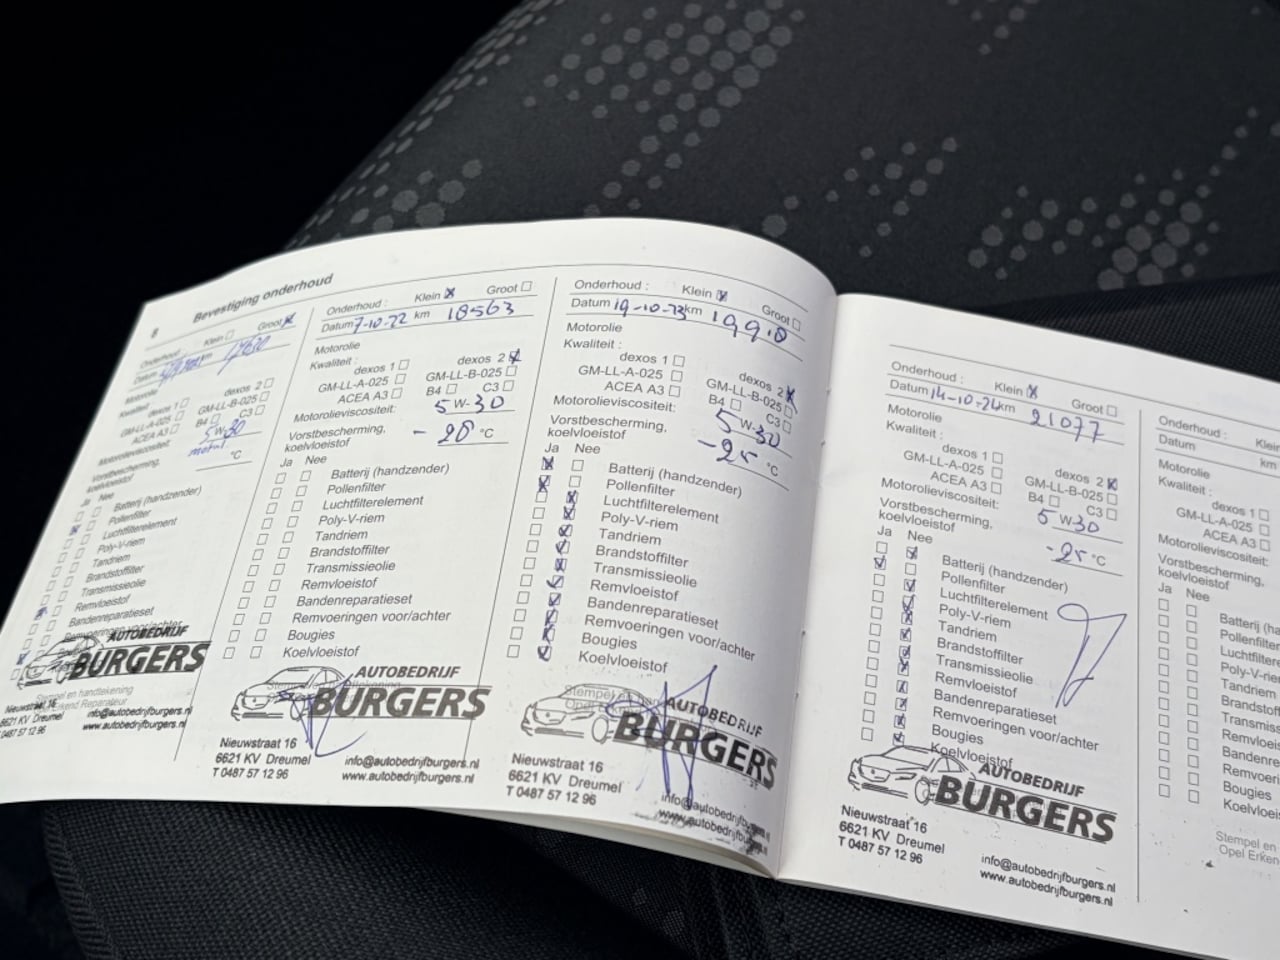 8
Bevestiging onderhoud
Onderhoud : Klein Groot
Datum km 17630
Motorolie
Kwaliteit : dexos 1 dexos 2
GM-LL-A-025 GM-LL-B-025
ACEA A3 B4 C3
Motorolieviscositeit: 5 W-30
Vorstbescherming,
koelvloeistof °C
Ja Nee
Batterij (handzender)
Pollenfilter
Luchtfilterelement
Poly-V-riem
Tandriem
Brandstoffilter
Transmissieolie
Remvloeistof
Bandenreparatieset
Remvoeringen voor/achter
AUTOBEDRIJF
BURGERS
Stempel en handtekening
Erkend Reparateur
Nieuwstraat 16
6621 KV Dreumel
0487 57 12 96
info@autobedrijfburgers.nl
www.autobedrijfburgers.nl
Onderhoud : Klein Groot
Datum 7-10-22 km 18563
Motorolie
Kwaliteit : dexos 1 dexos 2
GM-LL-A-025 GM-LL-B-025
ACEA A3 B4 C3
Motorolieviscositeit: 5 W-30
Vorstbescherming,
koelvloeistof - 26 °C
Ja Nee
Batterij (handzender)
Pollenfilter
Luchtfilterelement
Poly-V-riem
Tandriem
Brandstoffilter
Transmissieolie
Remvloeistof
Bandenreparatieset
Remvoeringen voor/achter
Bougies
Koelvloeistof
AUTOBEDRIJF
BURGERS
Nieuwstraat 16
6621 KV Dreumel
T 0487 57 12 96
info@autobedrijfburgers.nl
www.autobedrijfburgers.nl
Onderhoud : Klein Groot
Datum 19-10-23 km
Motorolie
Kwaliteit : dexos 1 dexos 2
GM-LL-A-025 GM-LL-B-025
ACEA A3 B4 C3
Motorolieviscositeit: 5 W-30
Vorstbescherming,
koelvloeistof -25 °C
Ja Nee
Batterij (handzender)
Pollenfilter
Luchtfilterelement
Poly-V-riem
Tandriem
Brandstoffilter
Transmissieolie
Remvloeistof
Bandenreparatieset
Remvoeringen voor/achter
Bougies
Koelvloeistof
Stempel en
Opel
AUTOBEDRIJF
BURGERS
Nieuwstraat 16
6621 KV Dreumel
T 0487 57 12 96
info@autobedrijfburgers.nl
www.autobedrijfburgers.nl
Onderhoud : Klein Groot
Datum 14-10-24 km 21077
Motorolie
Kwaliteit : dexos 1 dexos 2
GM-LL-A-025 GM-LL-B-025
ACEA A3 B4 C3
Motorolieviscositeit: 5 W-30
Vorstbescherming,
koelvloeistof -25 °C
Ja Nee
Batterij (handzender)
Pollenfilter
Luchtfilterelement
Poly-V-riem
Tandriem
Brandstoffilter
Transmissieolie
Remvloeistof
Bandenreparatieset
Remvoeringen voor/achter
Bougies
Koelvloeistof
AUTOBEDRIJF
BURGERS
Nieuwstraat 16
6621 KV Dreumel
T 0487 57 12 96
info@autobedrijfburgers.nl
www.autobedrijfburgers.nl
Onderhoud : Klein
Datum km
Motorolie
Kwaliteit : dexos 1
GM-LL-A-025
ACEA A3
Motorolieviscositeit:
Vorstbescherming,
koelvloeistof
Ja Nee
Batterij (ha
Pollenfilter
Luchtfilterele
Poly-V-riem
Tandriem
Brandstof
Transmiss
Remvloeis
Bandenre
Remvoeri
Bougies
Koelvloeis
Stempel en
Opel Erken